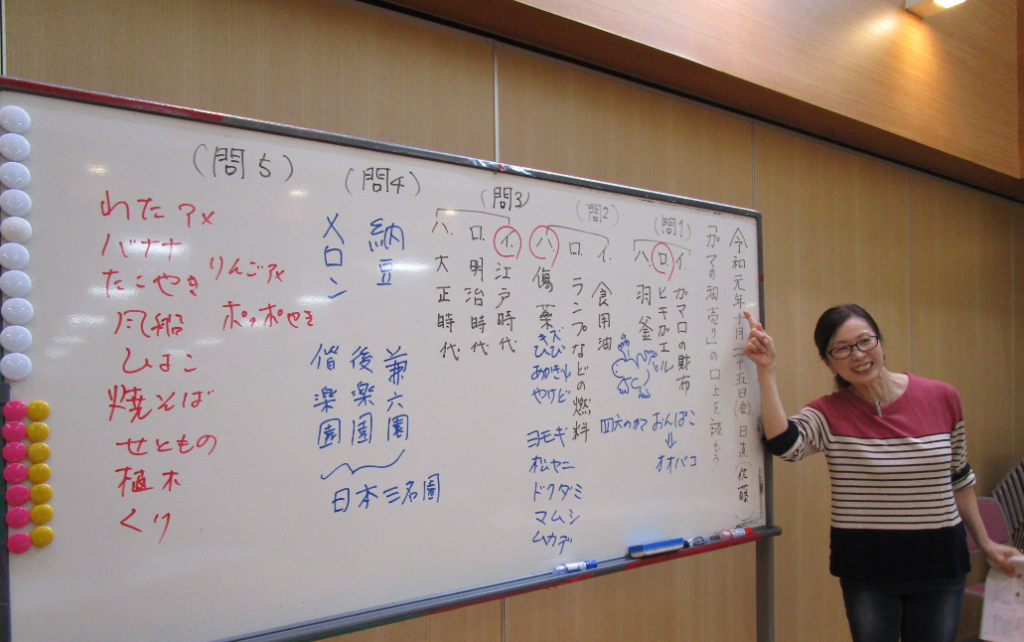 令和元年十月二十五日(金) 日直(佐藤)
「ガマの油売り」の口上を読もう
(問1)
イ. ガマ口の財布
ロ. ヒキガエル
ハ. 羽釜
おんばこ
⇓
オオバコ
四六のガマ
(問2)
イ. 食用油
ロ. ランプなどの燃料
ハ. 傷薬
キズ
ひび
あかぎれ
やけど
ヨモギ
松ヤニ
ドクダミ
マムシ
ムカデ
(問3)
イ. 江戸時代
ロ. 明治時代
ハ. 大正時代
(問4)
納豆
メロン
兼六園
後楽園
偕楽園
日本三名園
(問5)
わたアメ
バナナ
たこやき りんごアメ
風船 ポッポやき
ひよこ
焼そば
せともの
植木
くり